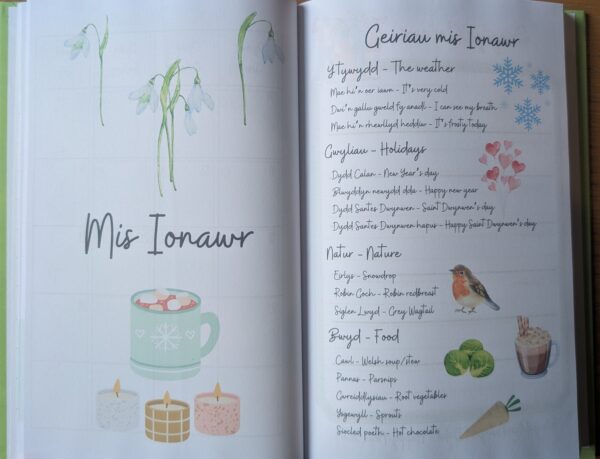 Mis Ionawr
Geiriau mis Ionawr
Y Tywydd - The weather
Mae hi'n oer iawn - It's very cold
Dwi'n gallu gweld fy anadl - I can see my breath
Mae hi'n rhewllyd heddiw - It's frosty today
Gwyliau - Holidays
Dydd Calan - New Year's day
Blwyddyn newydd dda - Happy new year
Dydd Santes Dwynwen - Saint Dwynwen's day
Dydd Santes Dwynwen hapus - Happy Saint Dwynwen's day
Natur - Nature
Eirlys - Snowdrop
Robin Goch - Robin redbreast
Siglen Lwyd - Grey Wagtail
Bwyd - Food
Cawl - Welsh soup/stew
Pannas - Parsnips
Gwreiddlysiau - Root vegetables
Ysgewyll - Sprouts
Siocled poeth - Hot chocolate